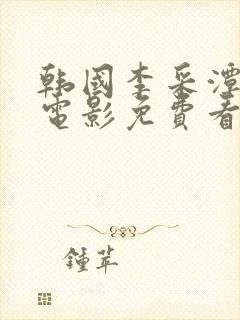 韩國李采潭
電影免費看
鍾苹